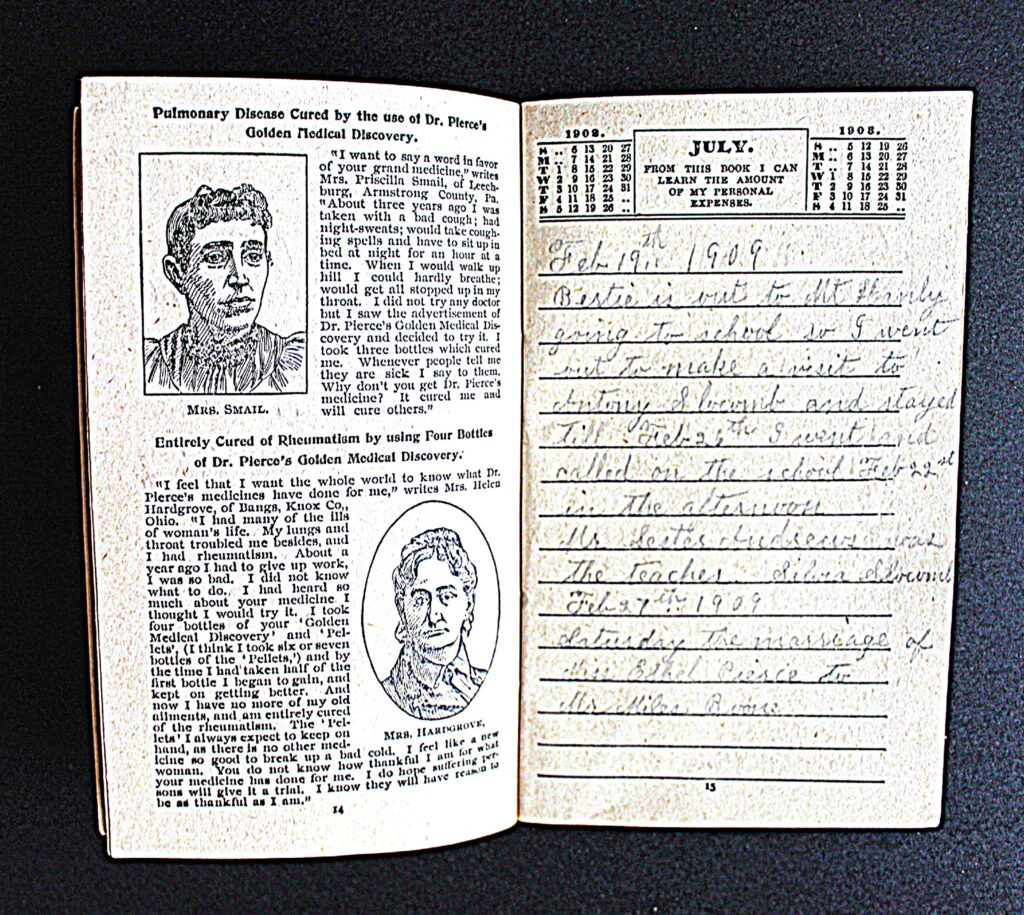 Pulmonary Disease Cured by the use of Dr. Pierce's
Golden Medical Discovery.
"I want to say a word in favor
of your grand medicine," writes
Mrs. Priscilla Smail, of Leech-
burg, Armstrong County, Pa.
"About three years ago I was
taken with a bad cough; had
night-sweats; would take cough-
ing spells and have to sit up in
bed at night for an hour at a
time. When I would walk up
hill I could hardly breathe;
would get all stopped up in my
throat. I did not try any doctor
but I saw the advertisement of
Dr. Pierce's Golden Medical Dis-
covery and decided to try it. I
took three bottles which cured
me. Whenever people tell me
they are sick I say to them,
Why don't you get Dr. Pierce's
medicine? It cured me and
will cure others."
MRS. SMAIL.
Entirely Cured of Rheumatism by using Four Bottles
of Dr. Pierce's Golden Medical Discovery.
"I feel that I want the whole world to know what Dr.
Pierce's medicines have done for me," writes Mrs. Helen
Hardgrove, of Bangs, Knox Co.,
Ohio. "I had many of the ills
of woman's life. My lungs and
throat troubled me besides, and
I had rheumatism. About a
year ago I had to give up work,
I was so bad. I did not know
what to do. I had heard so
much about your medicine I
thought I would try it. I took
four bottles of your 'Golden
Medical Discovery' and 'Pel-
lets', (I think I took six or seven
bottles of the 'Pellets,') and by
the time I had taken half of the
first bottle I began to gain, and
kept on getting better. And
now I have no more of my old
ailments, and am entirely cured
of the rheumatism. The 'Pel-
lets' I always expect to keep on
hand, as there is no other med-
icine so good to break up a bad cold. I feel like a new
woman. You do not know how thankful I am for what
your medicine has done for me. I do hope suffering per-
sons will give it a trial. I know they will have reason to
be as thankful as I am."
MRS. HARDGROVE.
14
1902.
S .. 6 13 20 27
M .. 7 14 21 28
T 1 8 15 22 29
W 2 9 16 23 30
T 3 10 17 24 31
F 4 11 18 25 ..
S 5 12 19 26 ..
JULY.
FROM THIS BOOK I CAN
LEARN THE AMOUNT
OF MY PERSONAL
EXPENSES.
1903.
S .. 5 12 19 26
M .. 6 13 20 27
T .. 7 14 21 28
W 1 8 15 22 29
T 2 9 16 23 30
F 3 10 17 24 31
S 4 11 18 25 ..
Feb 19th 1909
Bertie is out to Mt Stanly
going to school so I went
out to make a visit to
Antony Slocomb and stayed
till Feb 26th I went and
called on the school Feb 22st
in the afternoon
Mr Lester Andrews was
the teacher Silvia Slocomb
Feb 27th 1909
Saturday the marriage of
Miss Ethel Pierce to
Mr Miles Boone
15